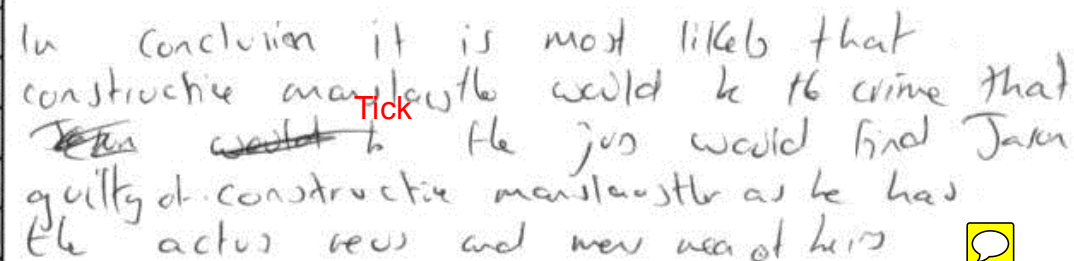 In conclusion it is most likely that
constructive manslaughter would be the crime that
Tick
the jury would find Jason
guilty of constructive manslaughter as he has
the actus reus and mens rea of